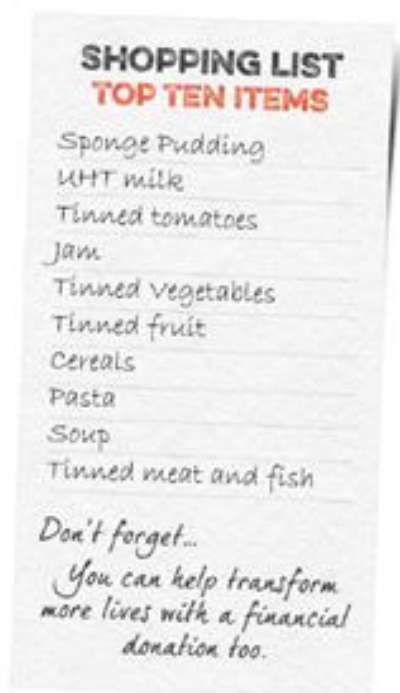 SHOPPING LIST
TOP TEN ITEMS
Sponge Pudding
UHT milk
Tinned tomatoes
Jam
Tinned vegetables
Tinned fruit
Cereals
Pasta
Soup
Tinned meat and fish
Don't forget...
You can help transform
more lives with a financial
donation too.